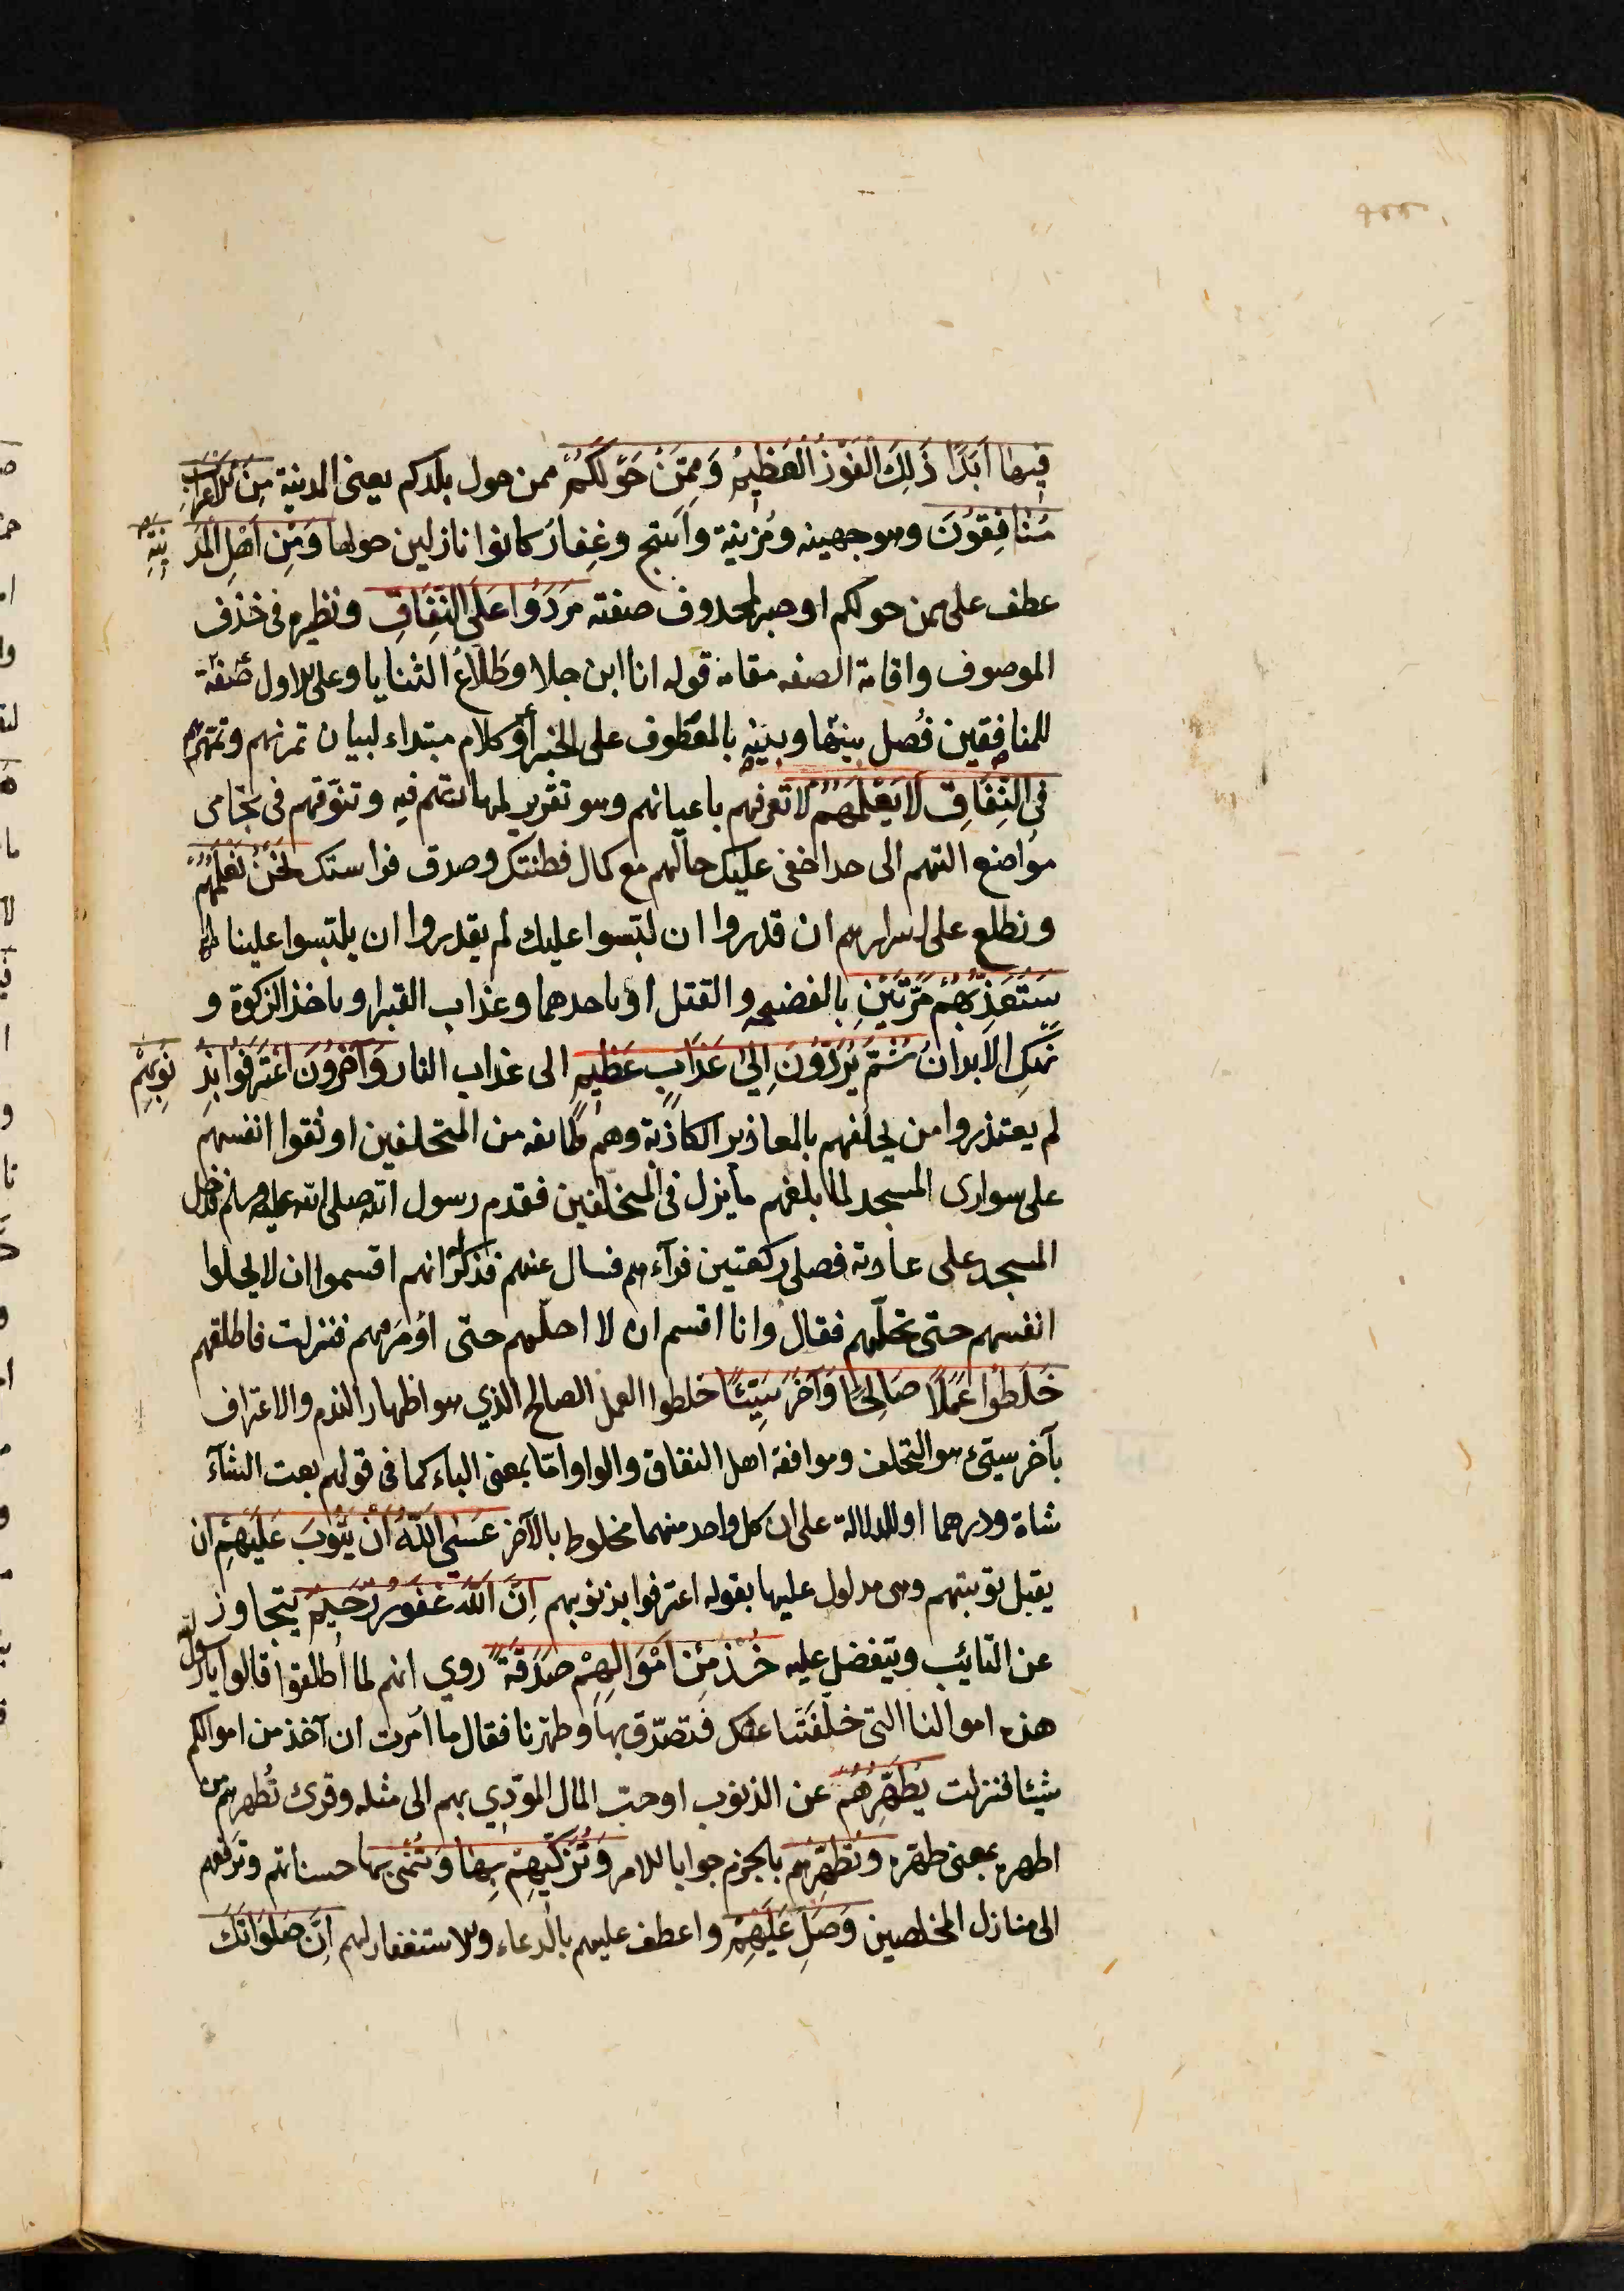 فِيهَا اَبَدًا ذَلِكَ الْفَوْزُ الْعَظِيمُ وَمِمَّنْ حَوْلَكُمْ ممن حول بلدكم يعنى المدينة مِنَ الْاَعْرَابِ
مُنَافِقُونَ وهو جهينه ومُزينة واشجع وغِفار كانوا نازلين حولها وَمِنْ اَهْلِ الْمَدِينَةِ
عطف على ممن حولكم او خبر لمحذوف صفته مَرَدُوا عَلَى النِّفَاقِ ونظيره فى حذف
الموصوف واقامة الصفه مقامه قوله انا ابن جلا وطَلّاعُ الثنايا وعلى الاول صفة
للمنافقين فُصل بينها وبينه بالمعطوف على الخبر أو كلام مبتداء لبيان تمرنهم وتمهّرهم
فِى النِّفَاقِ لَا تَعْلَمُهُمْ لا تعرفهم باعيانهم وهو تقرير لمهارتهم فيه وتنوّقهم فى تحامى
مواضع التهم الى حد اخفى عليك حالهم مع كمال فطنتك وصدق فراستك نَحْنُ نَعْلَمُهُمْ
ونطلع على اسرارهم ان قدروا ان لبّسوا عليك لم يقدروا ان يلبّسوا علينا
سَنُعَذِّبُهُمْ مَرَّتَيْنِ بالفضيحه والقتل او باحدهما وعذاب القبر او باخذ الزكوة و
نهك الابدان ثُمَّ يُرَدُّونَ اِلَىٰ عَذَابٍ عَظِيمٍ الى عذاب النار وَآخَرُونَ اعْتَرَفُوا بِذُنُوبِهِمْ
لم يعتذروا من تخلفهم بالمعاذير الكاذبة وهم طائفه من المتخلفين اوثقوا انفسهم
على سوارى المسجد لما بلغهم ما نزل فى المتخلفين فقدم رسول الله صلى الله عليه وسلم فدخل
المسجد على عادته فصلى ركعتين فرآءهم فسال عنهم فذكر له انهم اقسموا ان لا يحلوا
انفسهم حتى تحلّهم فقال وانا اقسم ان لا احلّهم حتى اومر فيهم فنزلت فاطلقهم
خَلَطُوا عَمَلًا صَالِحًا وَآخَرَ سَيِّئًا خلطوا العمل الصالح الذي هو اظهار الندم والاعتراف
بآخر سيّئ هو التخلف وموافقة اهل النفاق والواو امّا بمعنى الباء كما فى قولهم بعت الشآء
شاة ودرهما او للدلالة على ان كل واحد منهما مخلوط بالآخر عَسَى اللّٰهُ اَنْ يَتُوبَ عَلَيْهِمْ ان
يقبل توبتهم وهى مدلول عليها بقوله اعترفوا بذنوبهم اِنَّ اللّٰهَ غَفُورٌ رَحِيمٌ يتجاوز
عن التائب ويتفضل عليه خُذْ مِنْ اَمْوَالِهِمْ صَدَقَةً روي انهم لما أُطلقوا قالوا يا رسول الله
هذه اموالنا التى خلّفتنا عنك فتصدّق بها وطهّرنا فقال ما اُمرت ان آخذ من اموالكم
شيئا فنزلت تُطَهِّرُهُمْ عن الذنوب او حبّ المال المؤدّي بهم الى مثله وقرئ تُطهرهم من
اطهره بمعنى طهّره وتُطَهِّرْهم بالجزم جوابا للامر وَتُزَكِّيهِمْ بِهَا وتُنمى بها حسناتهم وترفعهم
الى منازل المخلصين وَصَلِّ عَلَيْهِمْ واعطف عليهم بالدعاء والاستغفار لهم اِنَّ صَلَوَاتَكَ